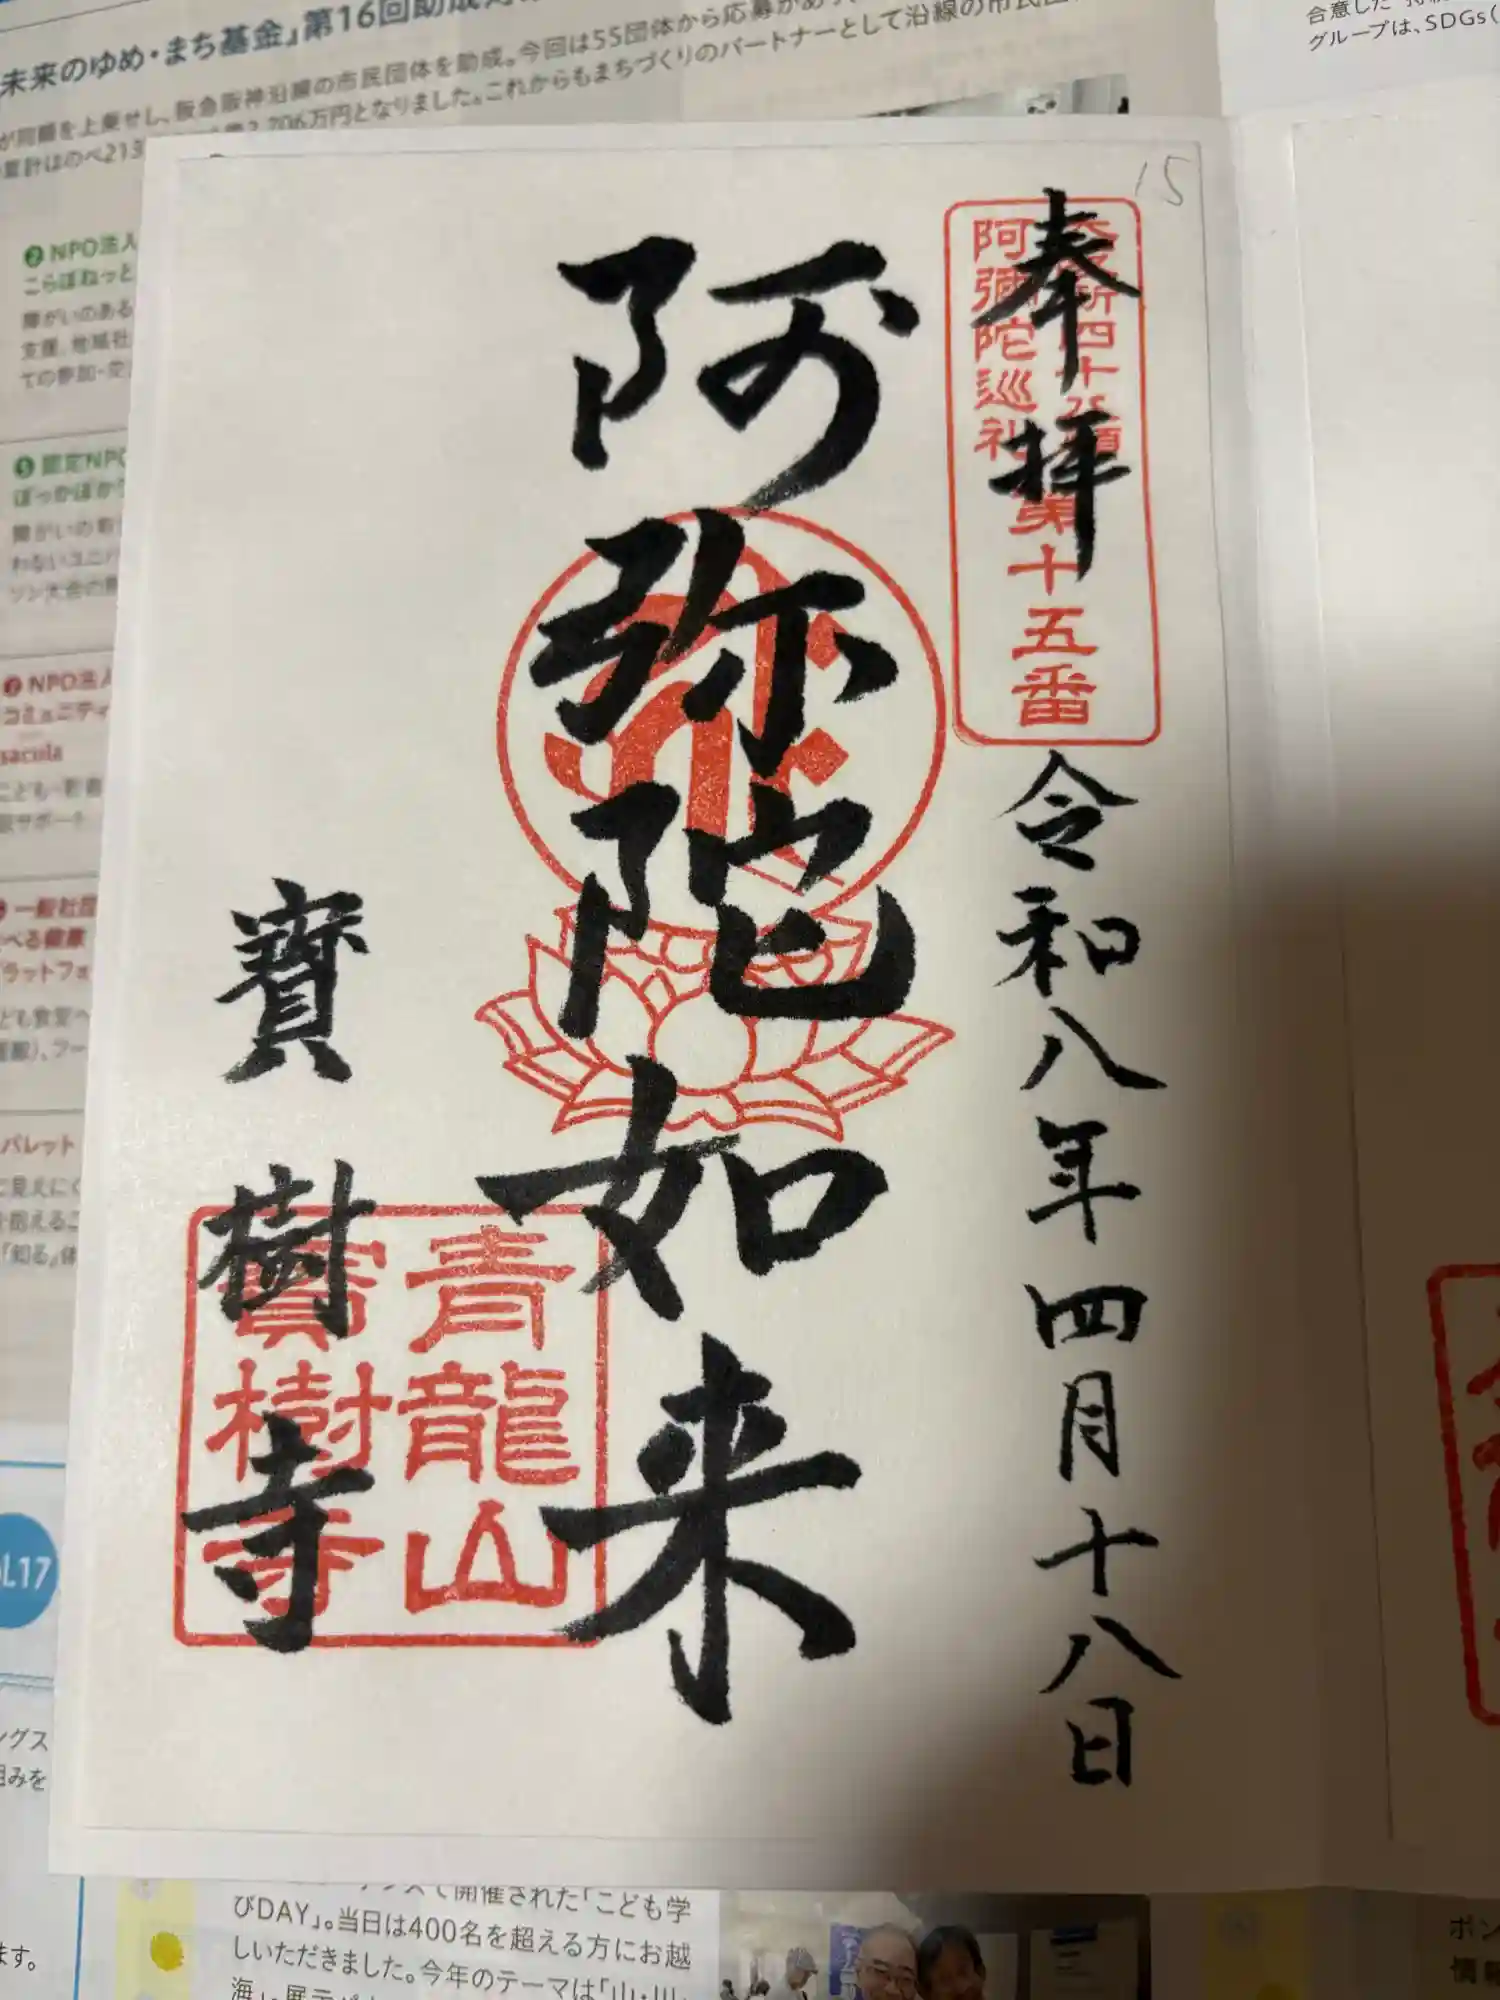 未来のゆめ・まち基金』第16回助成
が同額を上乗せし、阪急阪神沿線の市民団体を助成。今回は55団体から応募があり
706万円となりました。これからもまちづくりのパートナーとして沿線の市民団
累計はのべ213
合意した
グループは、SDGs(
15
奉拝
阿彌陀巡礼
第十五番
令和八年四月十八日
阿弥陀如来
寳樹寺
青龍山
寳樹寺
❷ NPO法人
こらぼねっと
障がいのある
支援、地域社
ての参加・交
❺ 認定NPO
ぽっかぽか
障がいの有
わないユニバ
ソン大会の
❼ NPO法人
コミュニティ
sacula
こども・若者
設サポート
一般社団
べる健康
プラットフォ
ども食堂へ
、フー
パレット
に見えにく
を抱えるこ
「知る」体
ol.17
ングス
組みを
ます。
で開催された「こども学
びDAY」。当日は400名を超える方にお越
しいただきました。今年のテーマは「山・川・
海」。展示パネ
ポン
情報